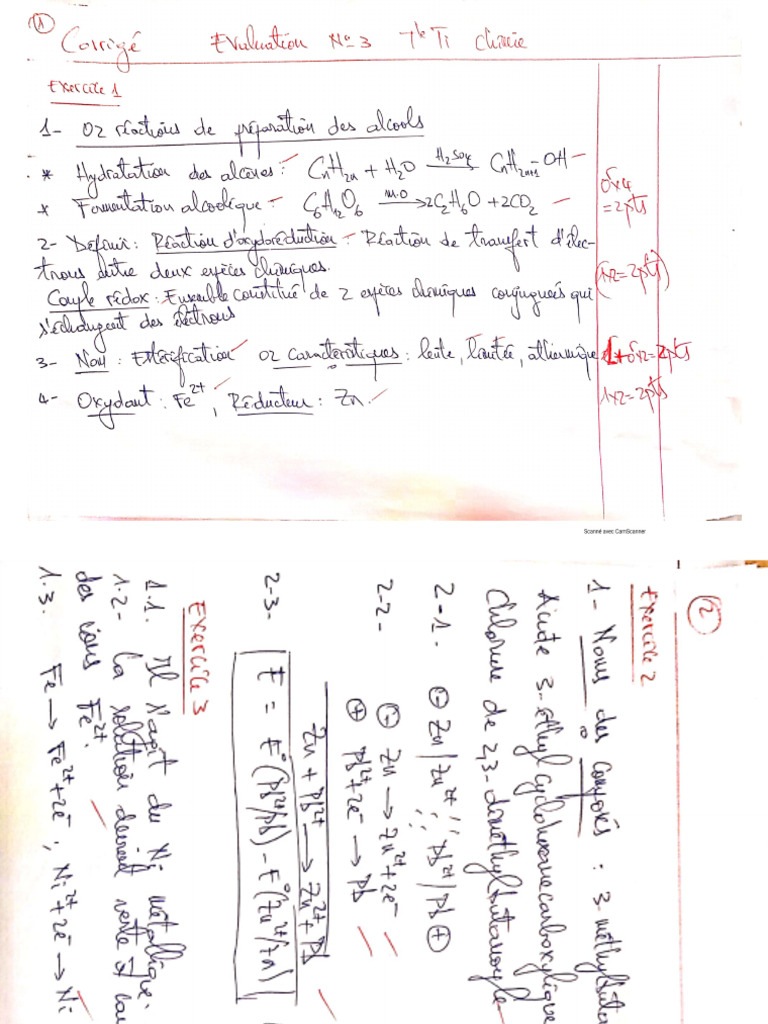 1
Corrigé Evaluation N°3 Tle TI Chimie
Exercice 1
1- 02 réactions de préparation des alcools
* Hydratation des alcènes : CnH2n + H2O —H2SO4→ CnH2n+1-OH
* Fermentation alcoolique : C6H12O6 —M.O→ 2C2H6O + 2CO2
x4
=2pts
2- Définir : Réaction d'oxydoréduction : Réaction de transfert d'élec-
trons entre deux espèces chimiques.
(1x2=2pts)
Couple rédox : Ensemble constitué de 2 espèces chimiques conjuguées qui
s'échangent des électrons
3- Nom : Estérification 02 caractéristiques : lente, limitée, athermique
x2=2pts
4- Oxydant : Fe2+, Réducteur : Zn.
1x2=2pts
Scanné avec CamScanner
2
Exercice 2
1- Noms des composés : 3-méthylbuta
Acide 3-éthylcyclohexanecarboxylique
Chlorure de 2,3-diméthylbutanoyle
2-1. ⊖ Zn/Zn2+ // Pb2+/Pb ⊕
2-2- ⊖ Zn → Zn2+ + 2e-
⊕ Pb2+ + 2e- → Pb
Zn + Pb2+ → Zn2+ + Pb
2-3- E = E°(Pb2+/Pb) - E°(Zn2+/Zn)
Exercice 3
1.1. Il s'agit du Ni métallique.
1.2- La solution devient verte
des ions Fe2+.
1.3. Fe → Fe2+ + 2e- ; Ni2+ + 2e- → Ni